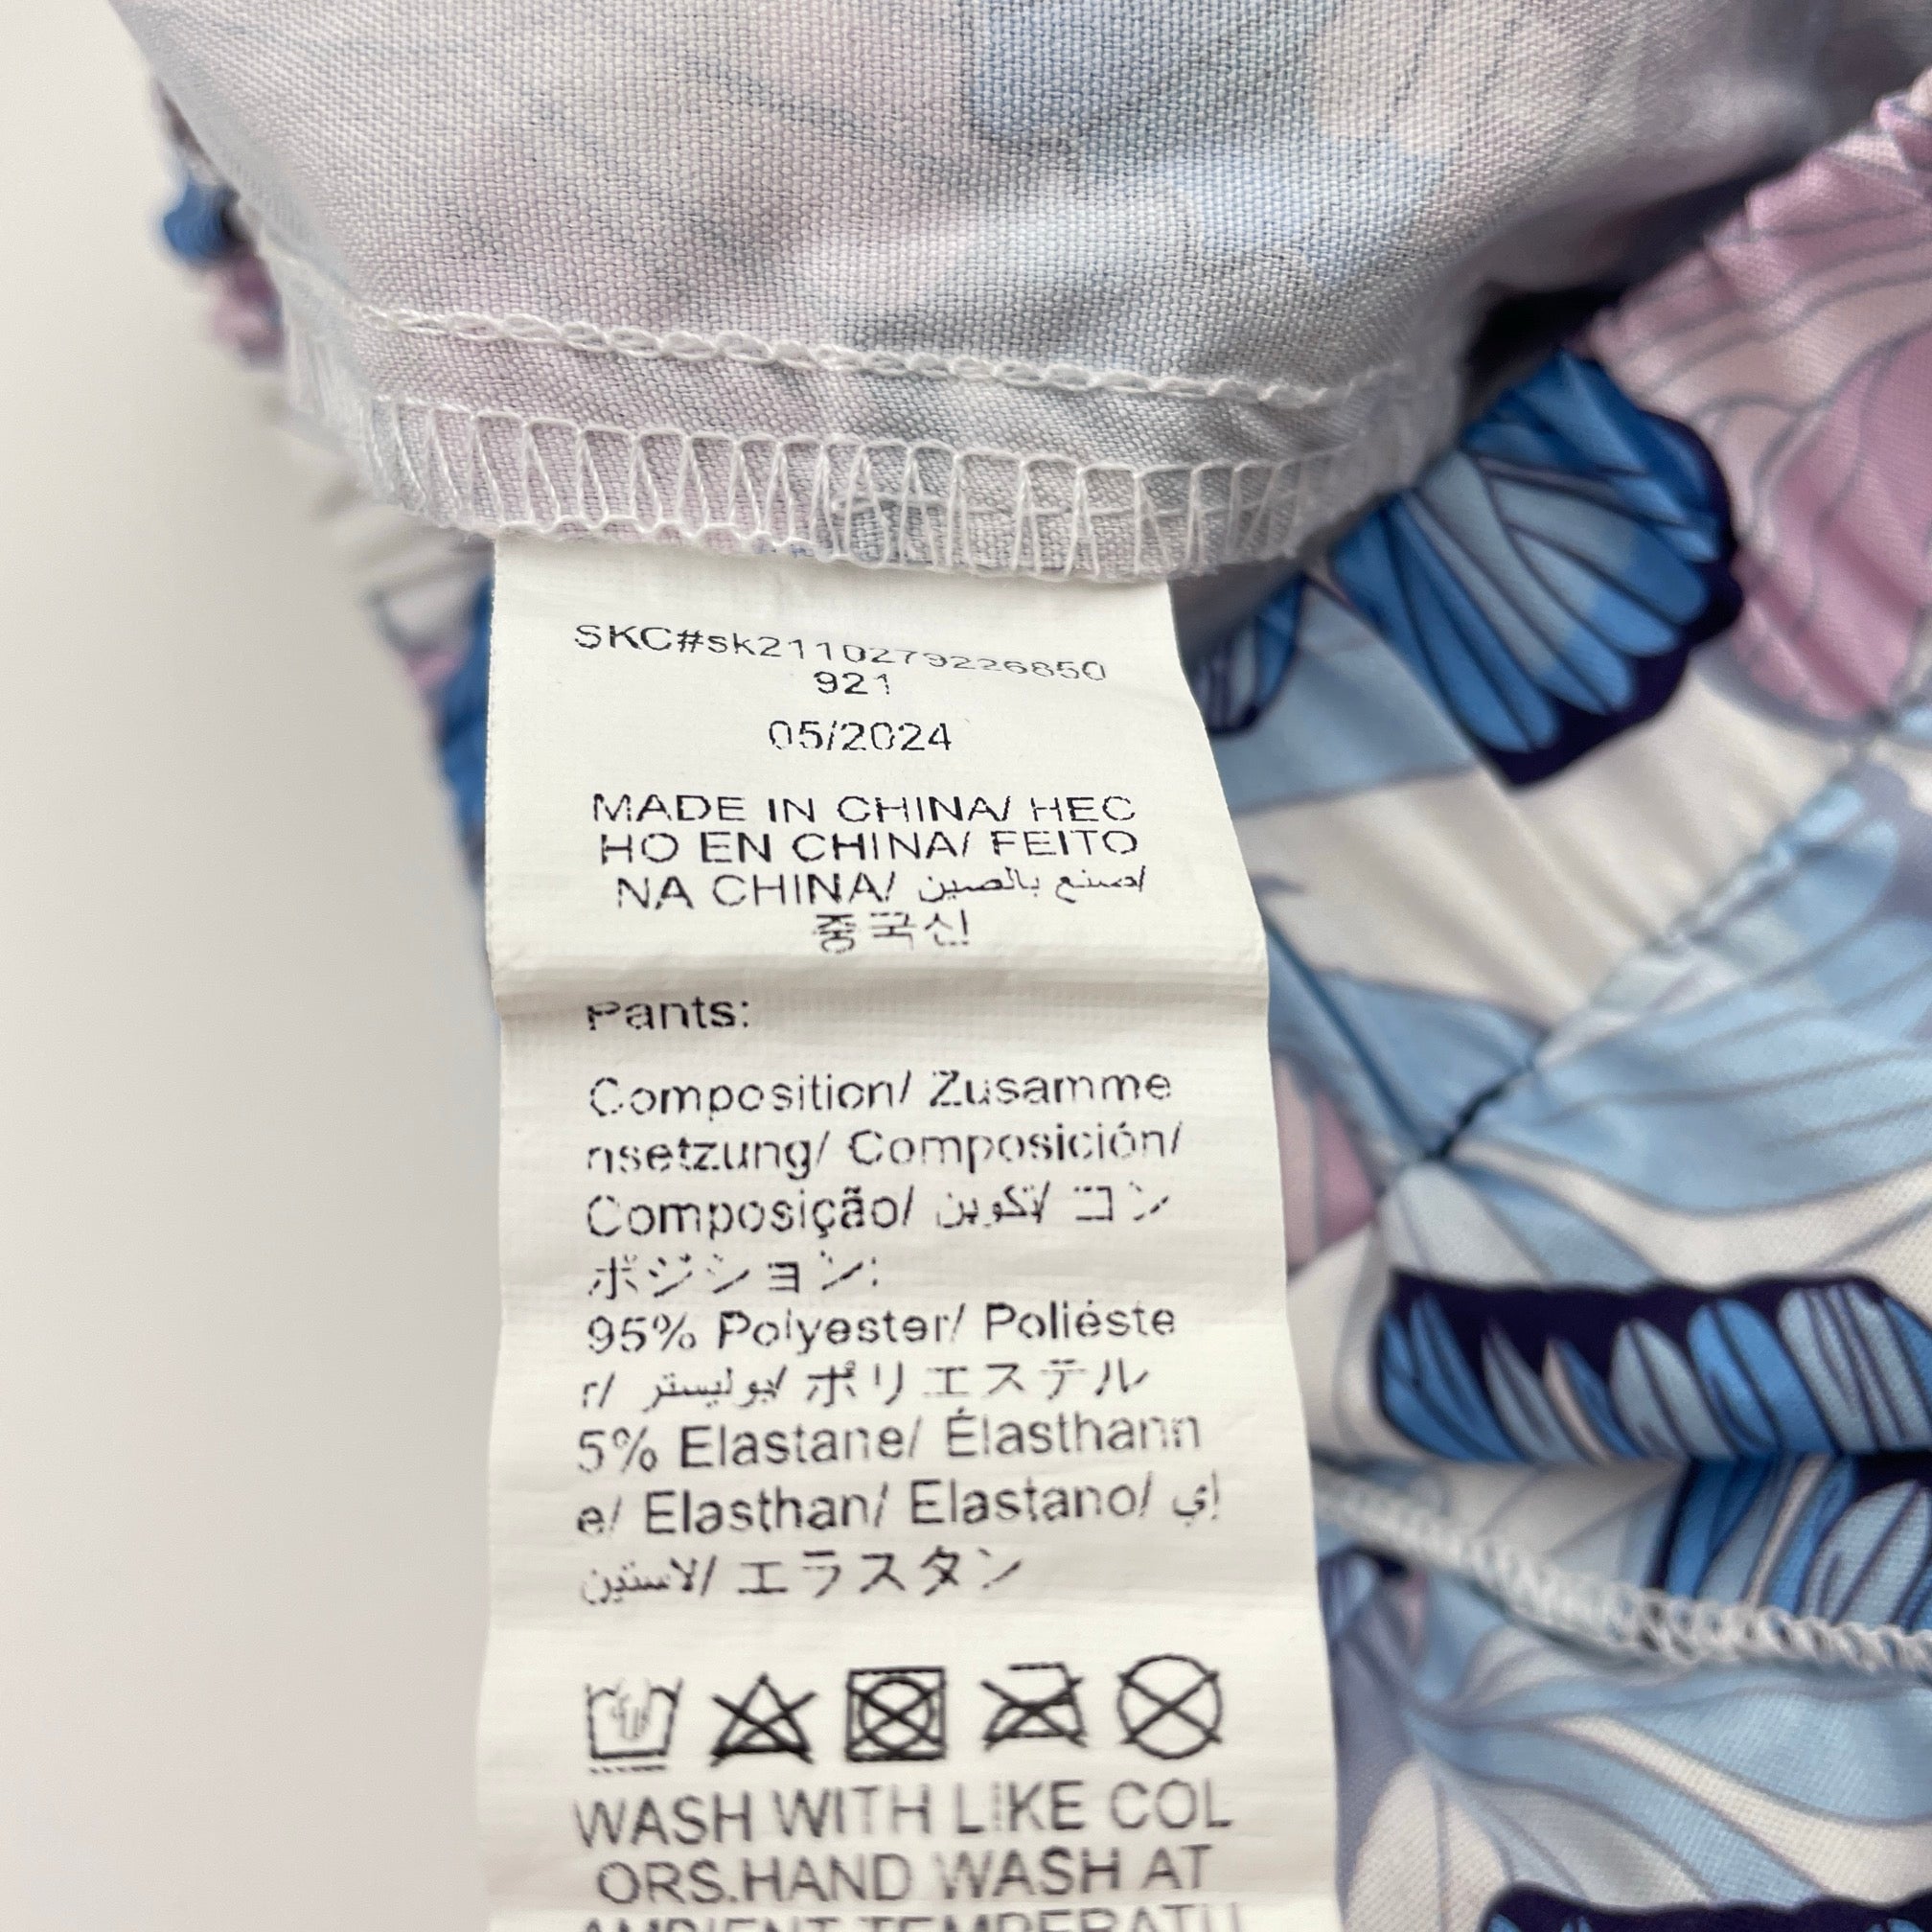 SKC#sk2110279226850
921
05/2024
MADE IN CHINA/ HEC
HO EN CHINA/ FEITO
NA CHINA/ صنع بالصين/
중국산
Pants:
Composition/ Zusamme
nsetzung/ Composición/
Composição/ تكوين/ コン
ポジション:
95% Polyester/ Poliéste
r/ بوليستر/ ポリエステル
5% Elastane/ Élasthann
e/ Elasthan/ Elastano/ إي
لاستين/ エラスタン
WASH WITH LIKE COL
ORS.HAND WASH AT
AMBIENT TEMPERATU